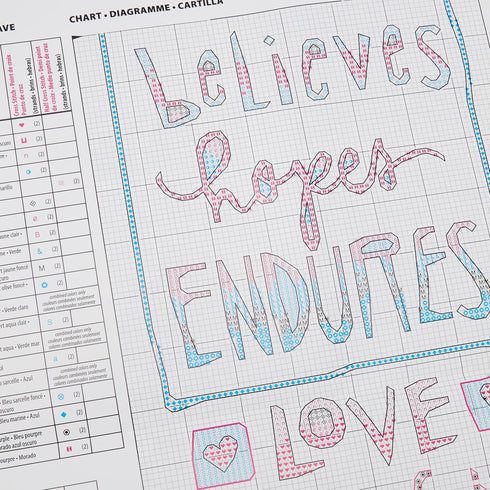 AVE
CHART • DIAGRAMME • CARTILLA
Cross Stitch • Point de croix
Punto de cruz
(strands • brins • hebras)
Half Cross Stitch • Demi point
de croix • Medio punto de cruz
(strands • brins • hebras)
(2)
oscuro (2)
(2)
(2)
amarillo
(2)
(2)
(2)
aune clair • B (2)
ne • Verde (2)
rt jaune foncé M (2)
olive foncé • (2)
• Verde claro combined colors only
couleurs combinées seulement
colores combinados solamente
ert aqua clair • S (2)
• Verde mar combined colors only
couleurs combinées seulement
colores combinados solamente
a (2)
o sarcelle • Azul combined colors only
couleurs combinées seulement
colores combinados solamente
Bleu sarcelle foncé • (2)
oscuro
Bleu marine • Azul (2)
urple • Bleu pourpre (2)
morado azul oscuro
ourpre • Morado (2)
beLieves
hopes
ENDURES
LOVE